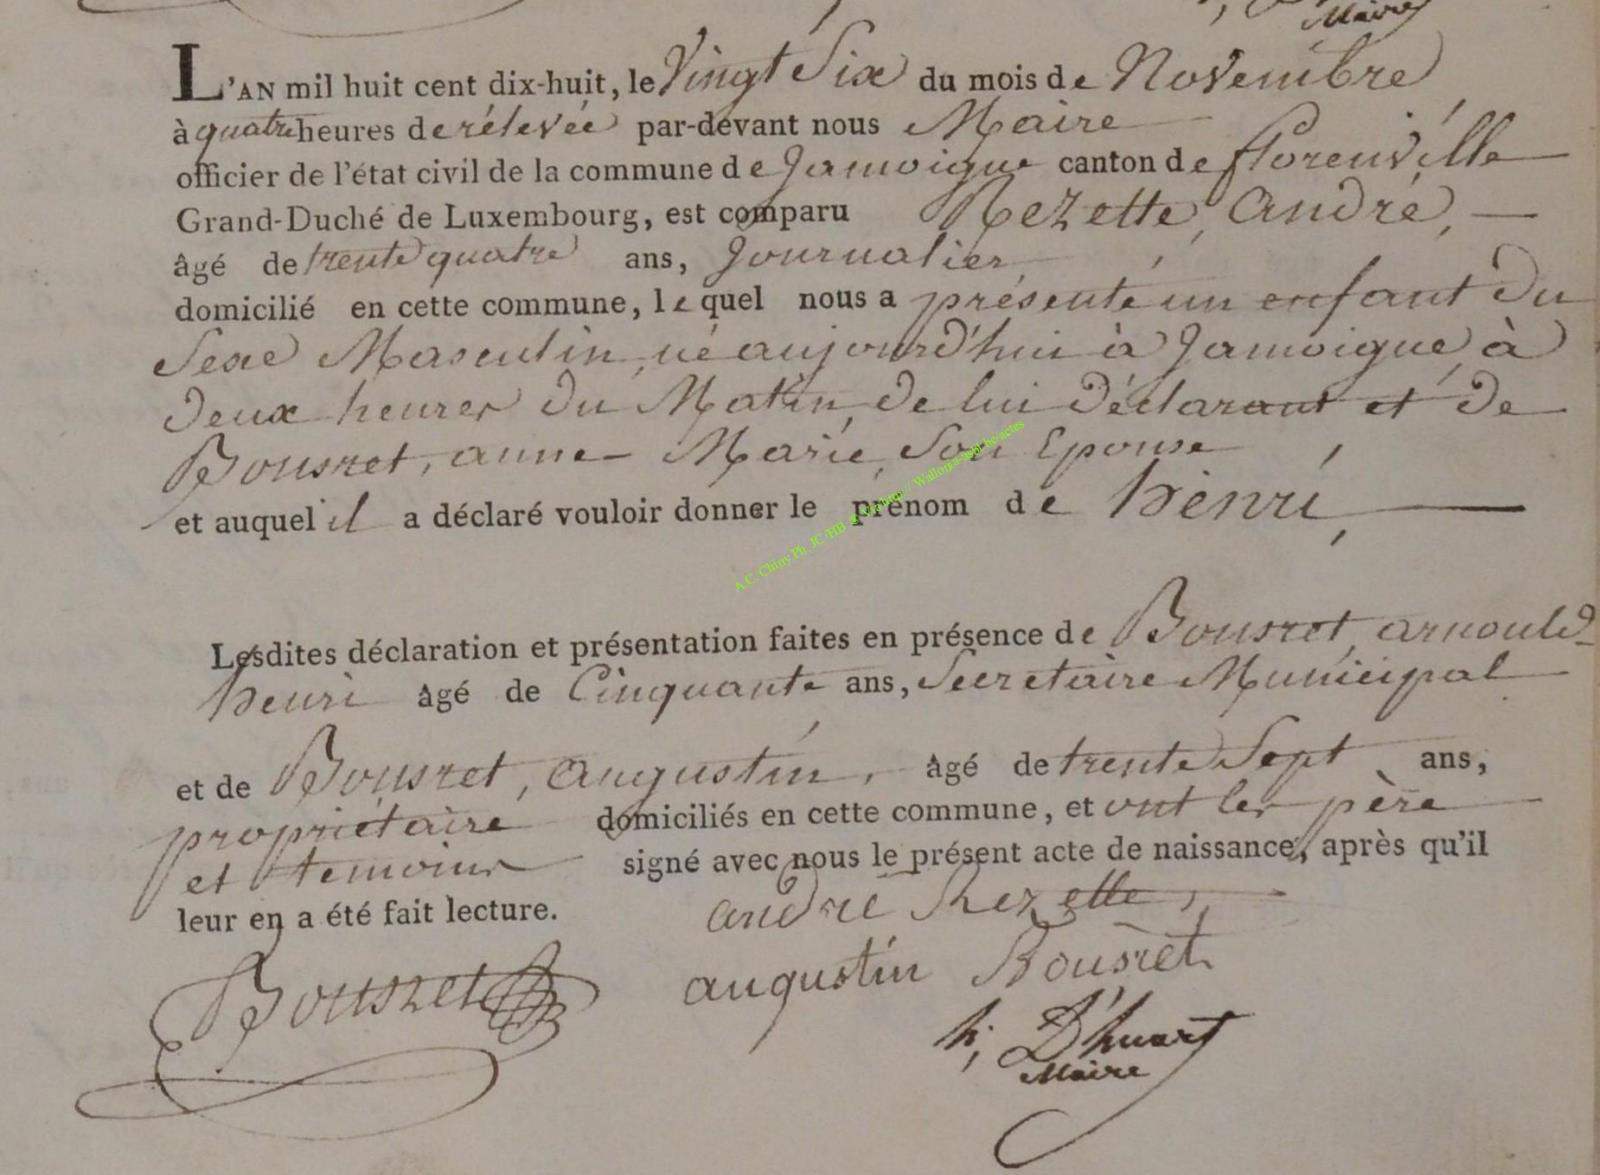 Maire
L'AN mil huit cent dix-huit, le Vingt Six du mois de Novembre
à quatre heures de rélevée par-devant nous Maire
officier de l'état civil de la commune de Jamoigne canton de florenville
Grand-Duché de Luxembourg, est comparu Rezette, André,
âgé de trente quatre ans, Journalier
domicilié en cette commune, le quel nous a présenté un enfant du
Sexe Masculin, né aujourd'hui à Jamoigne à
deux heures du Matin, de lui déclarant et de
Bousret, anne Marie, Son Epouse
et auquel il a déclaré vouloir donner le prénom de henri,
Lesdites déclaration et présentation faites en présence de Bousret, arnould
henri âgé de Cinquante ans, Secretaire Municipal
et de Bousret, Augustin, âgé de trente Sept ans,
propriétaire domiciliés en cette commune, et ont les père
et temoins signé avec nous le présent acte de naissance, après qu'il
leur en a été fait lecture.
andre Rezette,
Bousret
augustin Bousret
h, D'huart
Maire
A.C. Chiny Ph. JC-HB